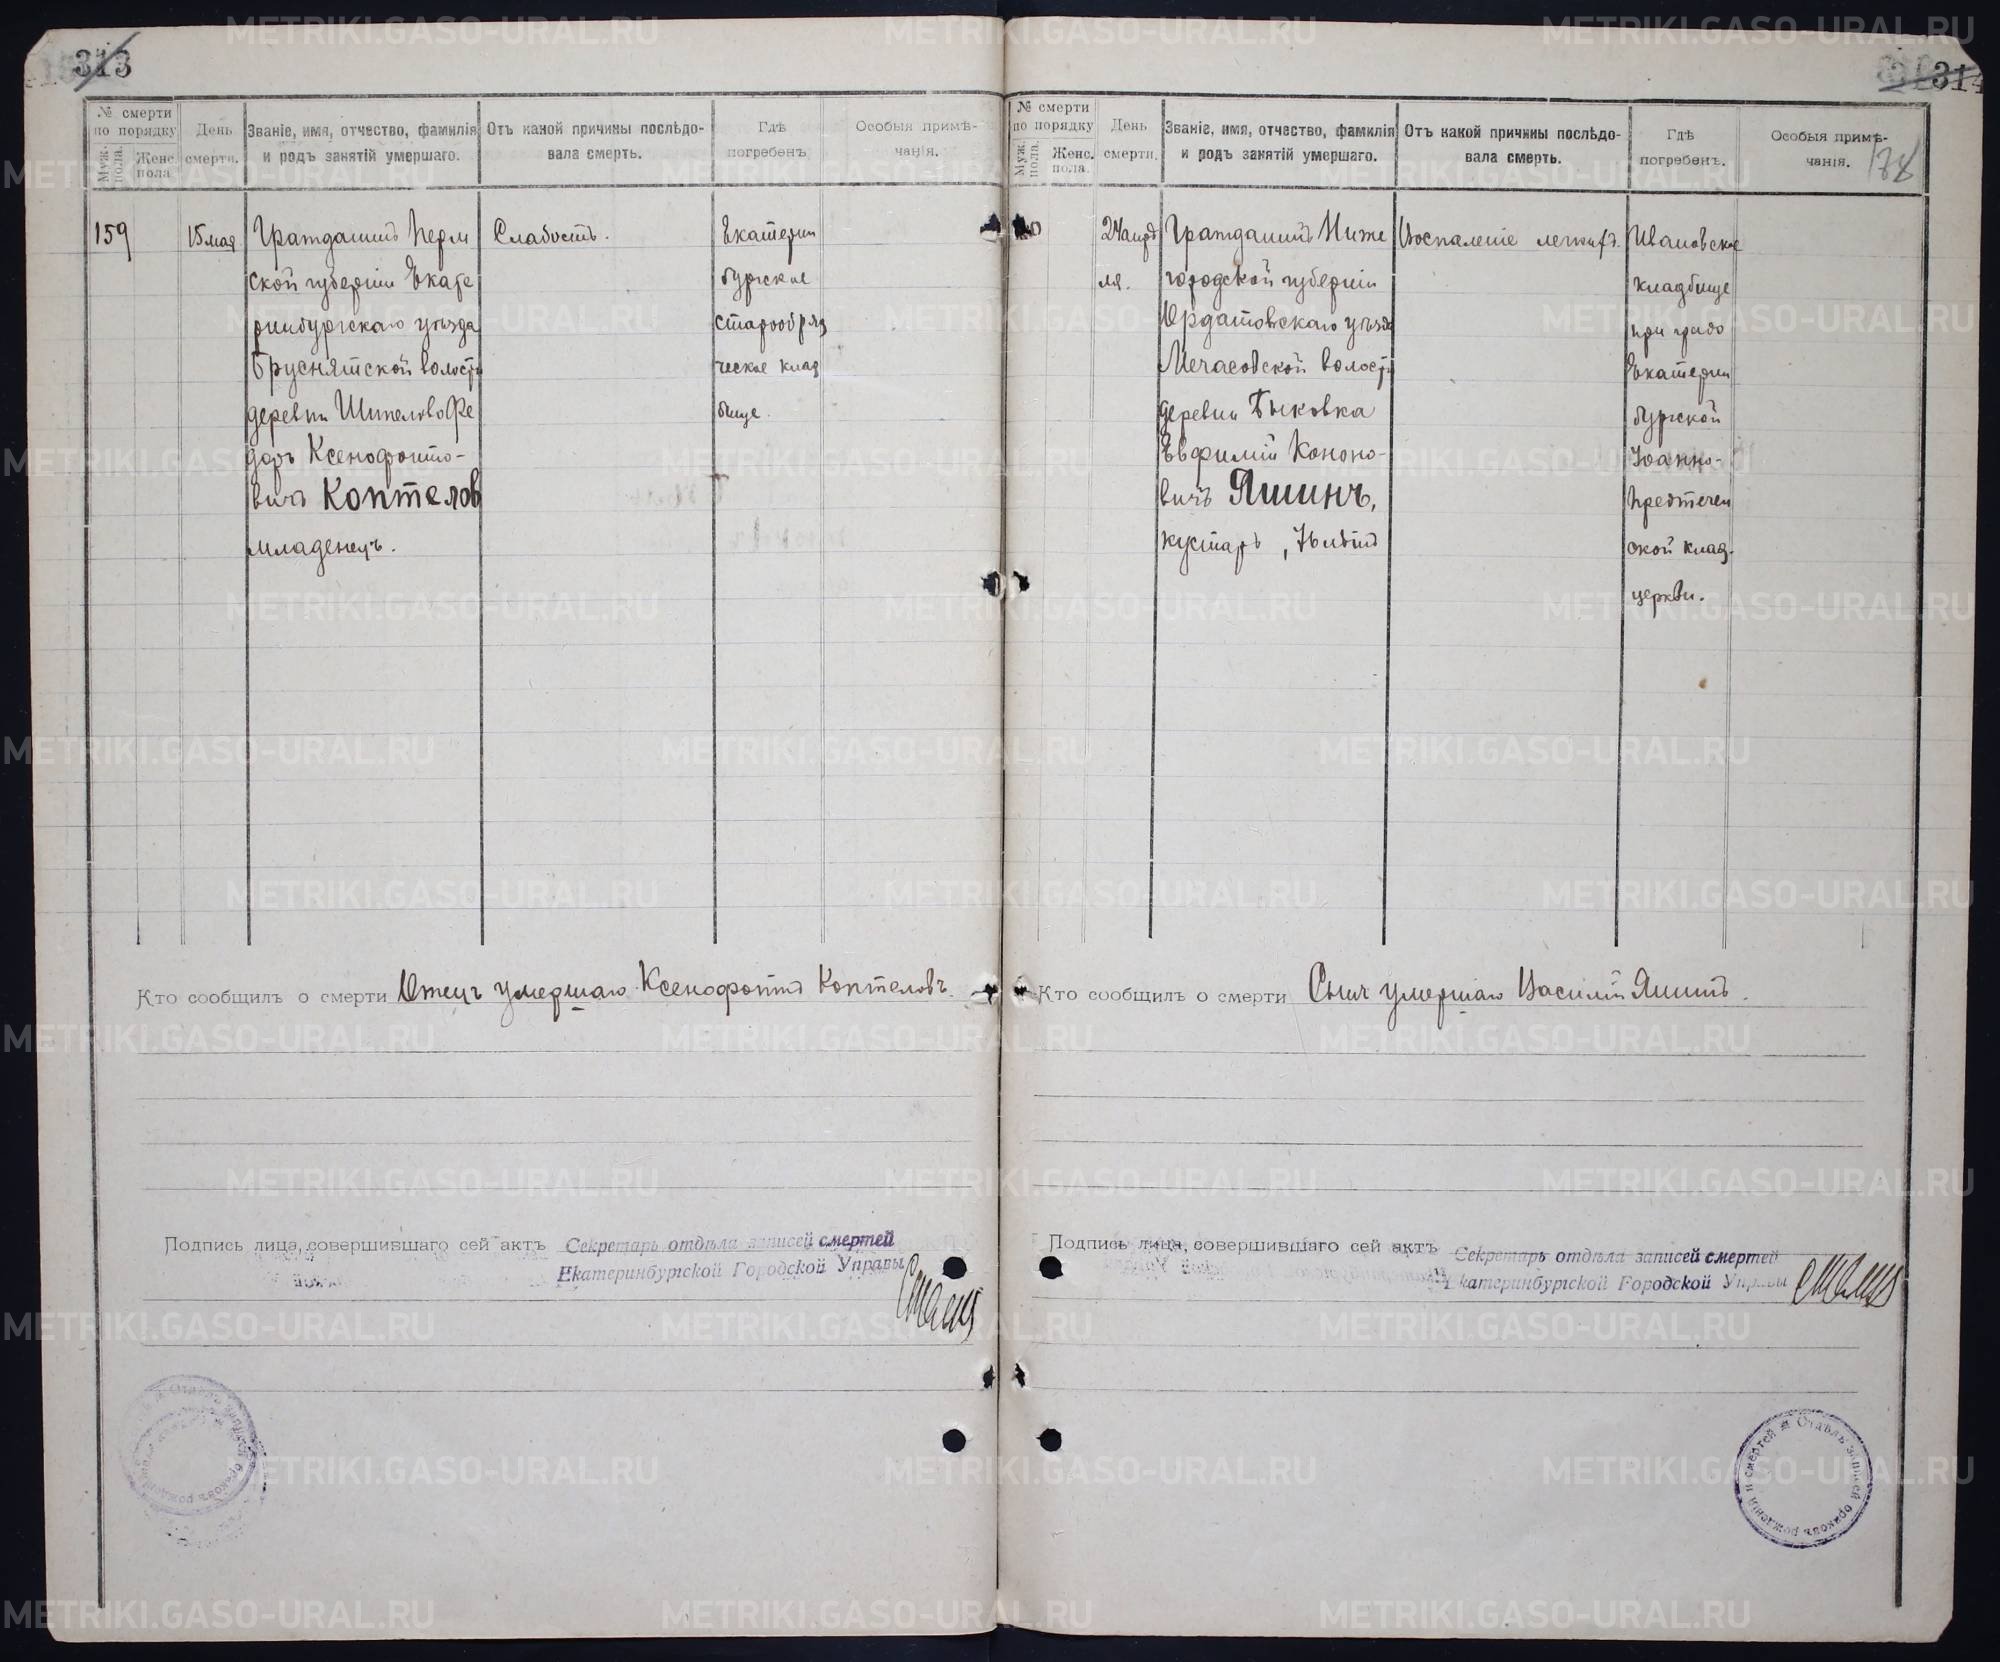 313
№ смерти
по порядку
Муж. пола.
Женс. пола
День
смерти.
Званіе, имя, отчество, фамилія
и родъ занятій умершаго.
Отъ какой причины послѣдо-
вала смерть.
Гдѣ
погребенъ
Особыя примѣ-
чанія.
159
15 мая
Гражданинъ Перм
ской губерніи Екате
ринбургскаго уѣзда
Бруснятской волости
деревни Шипелово Фе
доръ Ксенофонто-
вичъ Коптелов
младенецъ.
Слабость.
Екатерин
бургское
старообряд
ческое клад
бище.
Кто сообщилъ о смерти Отецъ умершаго Ксенофонтъ Коптеловъ.
Подпись лица, совершившаго сей актъ Секретарь отдѣла записей смертей
Екатеринбургской Городской Управы
314
№ смерти
по порядку
Муж. пола.
Женс. пола.
День
смерти.
Званіе, имя, отчество, фамилія
и родъ занятій умершаго.
Отъ какой причины послѣдо-
вала смерть.
Гдѣ
погребенъ.
Особыя примѣ-
чанія.
24 апрѣ
ля.
Гражданинъ Ниже
городской губерніи
Ардатовскаго уѣзда
Мечасовской волости
деревни Быковка
Евфимій Кононо-
вичъ Яшинъ,
кустарь,
Воспаленіе легкихъ.
Ивановское
кладбище
при градо
Екатерин
бургской
Іоанно-
Предтечен
ской клад.
церкви.
Кто сообщилъ о смерти Сынъ умершаго Василій Яшинъ.
Подпись лица, совершившаго сей актъ Секретарь отдѣла записей смертей
Екатеринбургской Городской Управы
Отдѣлъ записей браковъ рожденій и смертей
METRIKI.GASO-URAL.RU